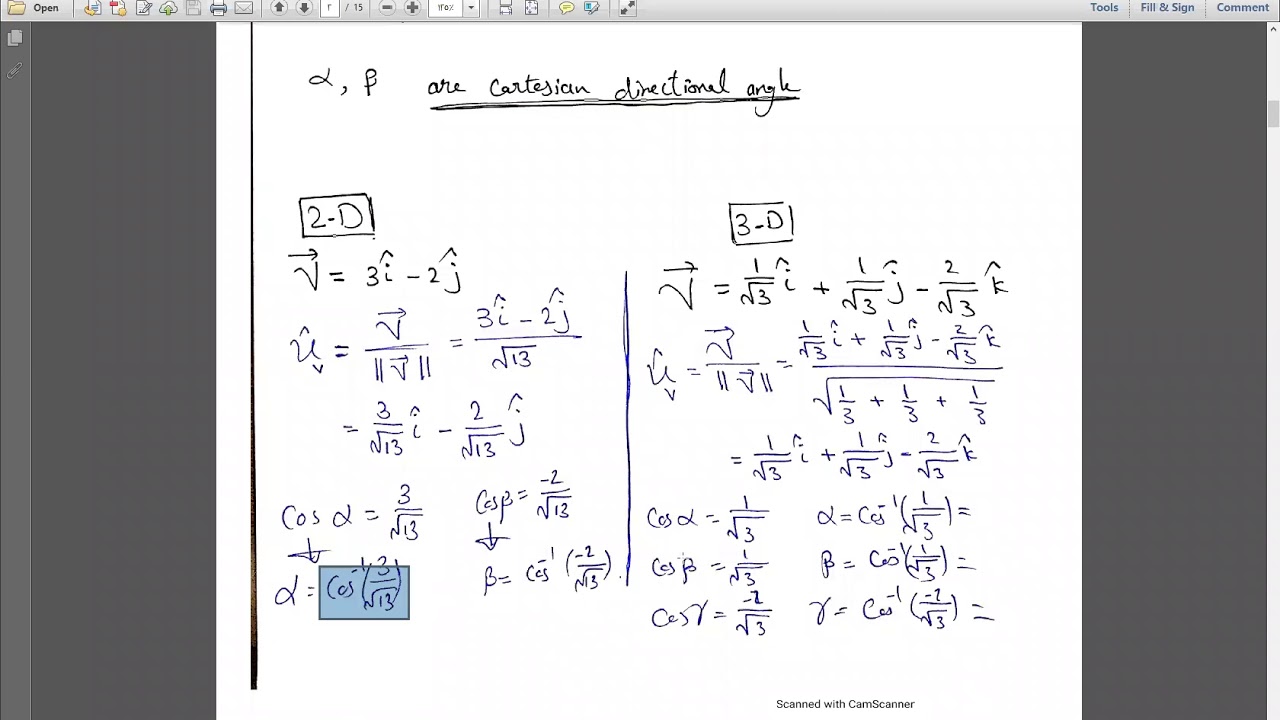 Open ٢ / 15 ١٢٥% Tools Fill & Sign Comment
α, β are cartesian directional angle
2-D
V⃗ = 3î - 2ĵ
û_v = V⃗ / ||V⃗|| = (3î - 2ĵ) / √13
= 3/√13 î - 2/√13 ĵ
Cos α = 3/√13
Cosβ = -2/√13
α = Cos⁻¹(3/√13)
β = Cos⁻¹(-2/√13).
3-D
V⃗ = 1/√3 î + 1/√3 ĵ - 2/√3 k̂
û_v = V⃗ / ||V⃗|| = (1/√3 î + 1/√3 ĵ - 2/√3 k̂) / √(1/3 + 1/3 + 1/3)
= 1/√3 î + 1/√3 ĵ - 2/√3 k̂
Cosα = 1/√3 α = Cos⁻¹(1/√3) =
Cosβ = 1/√3 β = Cos⁻¹(1/√3) =
Cosγ = -2/√3 γ = Cos⁻¹(-2/√3) =
Scanned with CamScanner